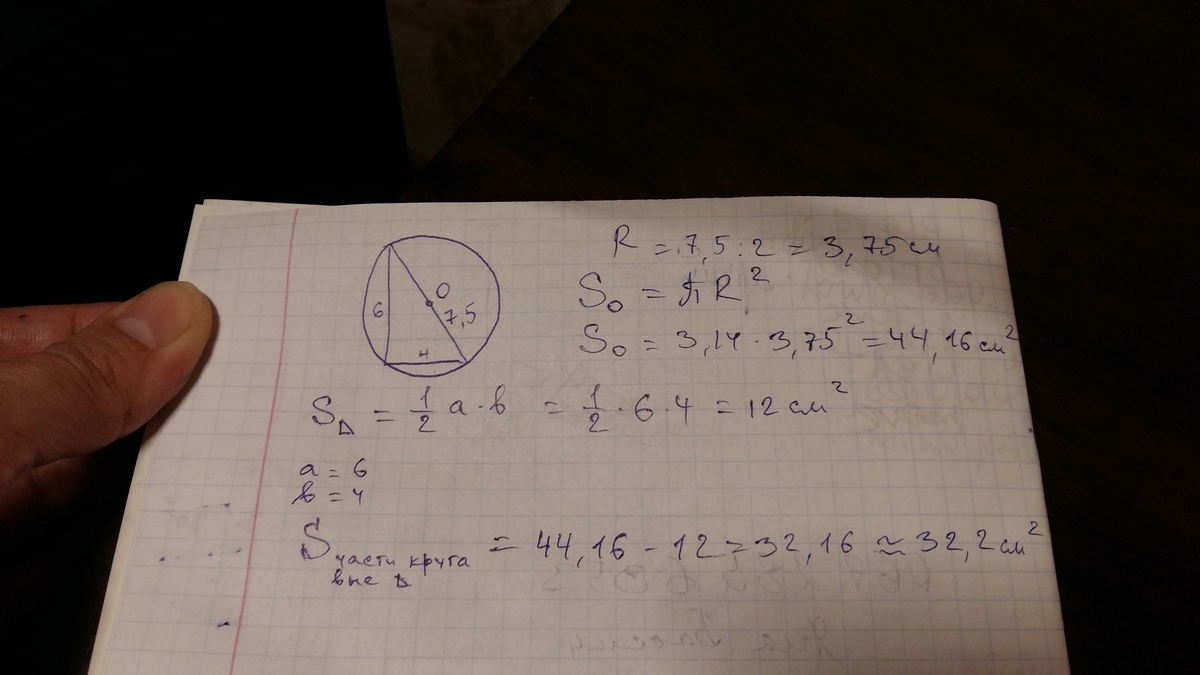 R = 7,5 : 2 = 3,75 см
S₀ = πR²
S₀ = 3,14 · 3,75² = 44,16 см²
O
6
7,5
4
S△ = 1/2 a · в = 1/2 · 6 · 4 = 12 см²
a = 6
в = 4
S части круга вне △ = 44,16 - 12 = 32,16 ≈ 32,2 см²